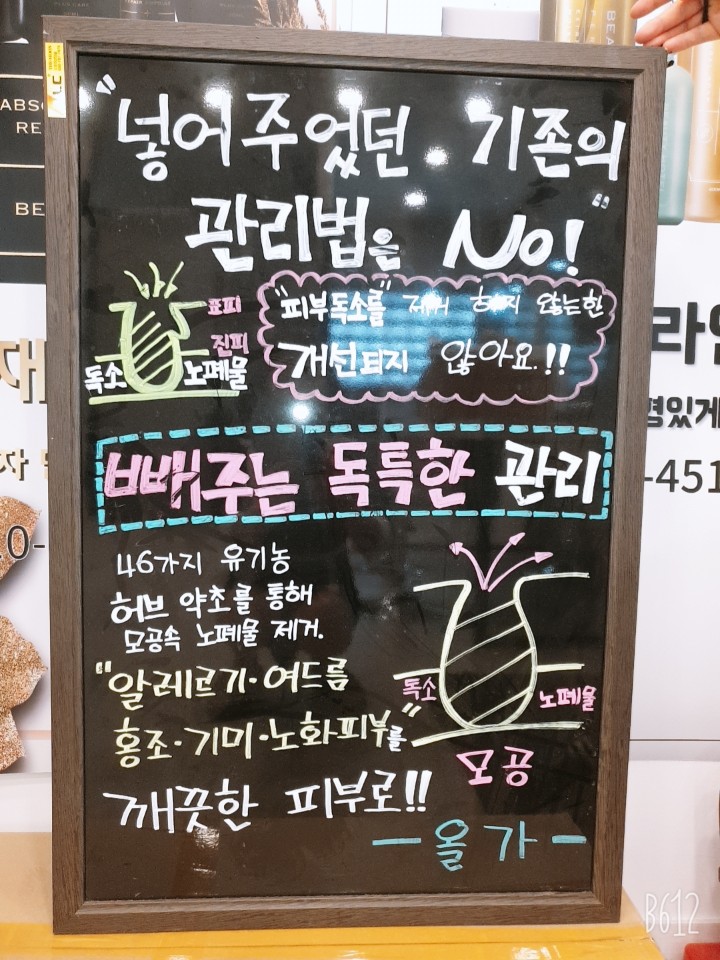 "넣어주었던 기존의
관리법은 NO!"
표피
진피
독소 노폐물
"피부독소를" 제거 하지 않는한
개선되지 않아요.!!
빼주는 독특한 관리
46가지 유기농
허브 약초를 통해
모공속 노폐물 제거.
"알레르기·여드름
홍조·기미·노화피부"를
깨끗한 피부로!!
독소
노폐물
모공
-올가-
BE
RE
평있게
-451
B612